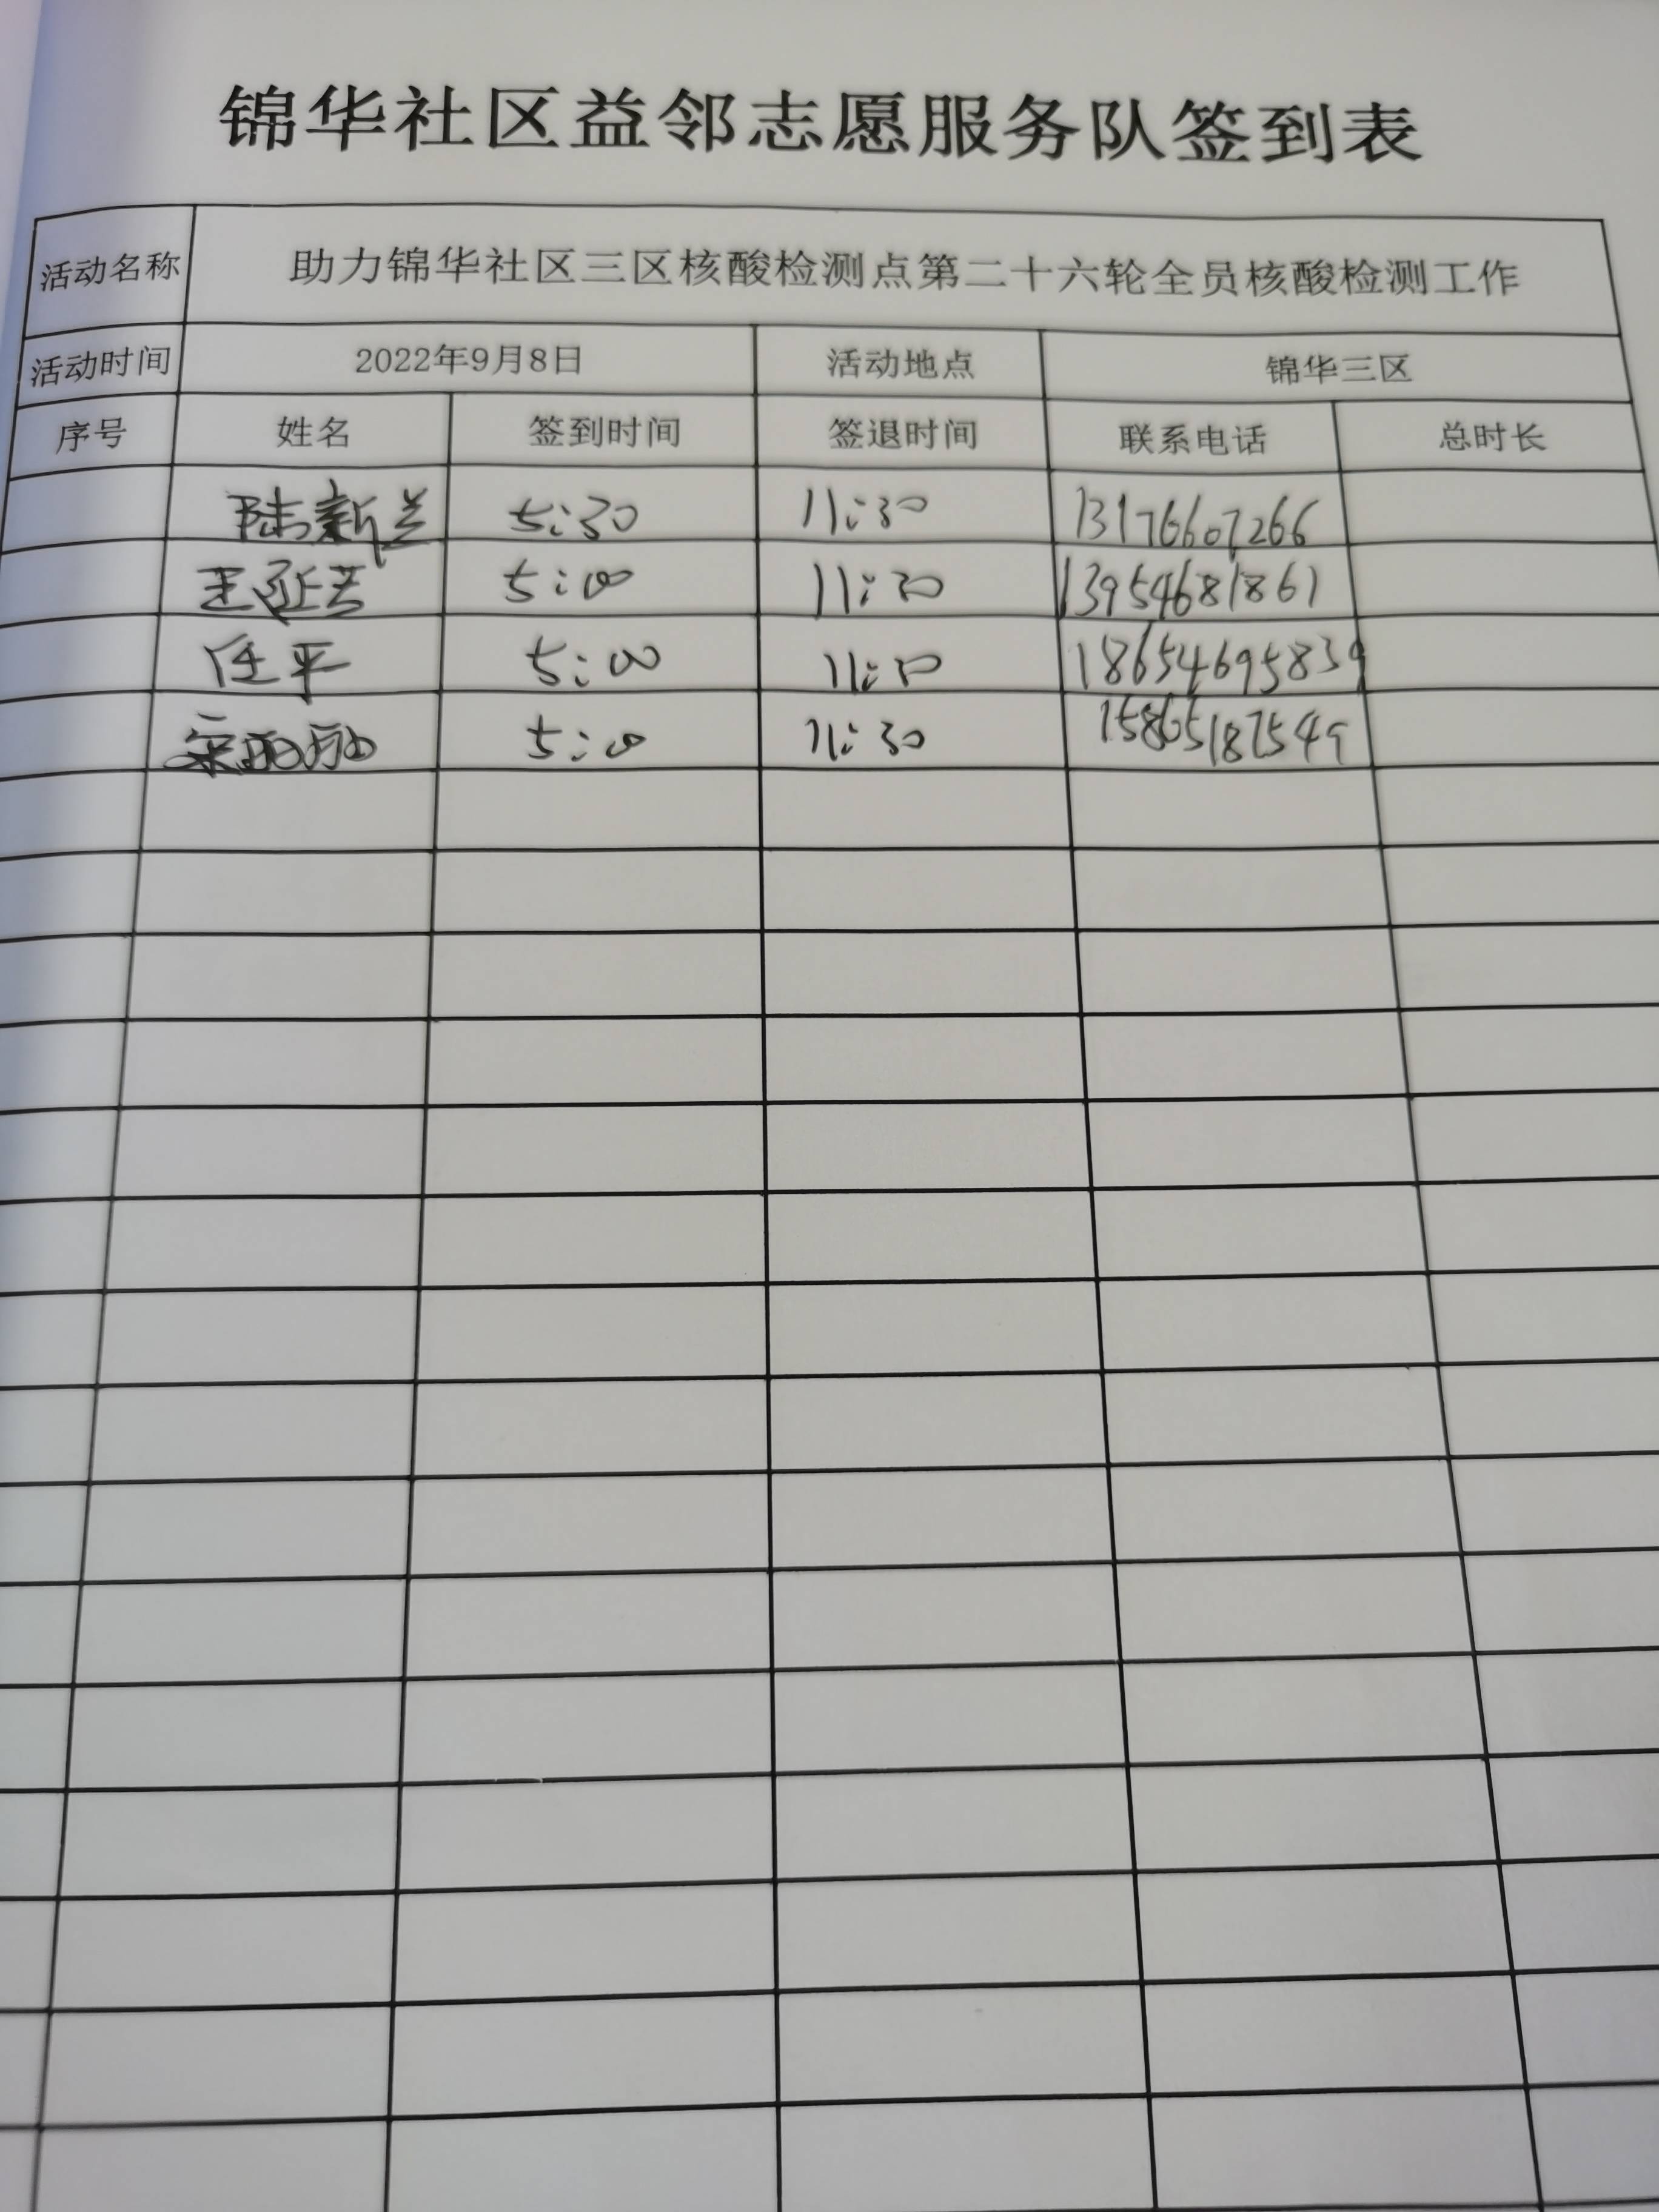 锦华社区益邻志愿服务队签到表
活动名称 助力锦华社区三区核酸检测点第二十六轮全员核酸检测工作
活动时间 2022年9月8日 活动地点 锦华三区
序号 姓名 签到时间 签退时间 联系电话 总时长
陆新兰 5:30 11:30 13176607266
王延芸 5:00 11:30 13954681861
任平 5:00 11:30 18654695839
宋丽丽 5:00 11:30 15865187549